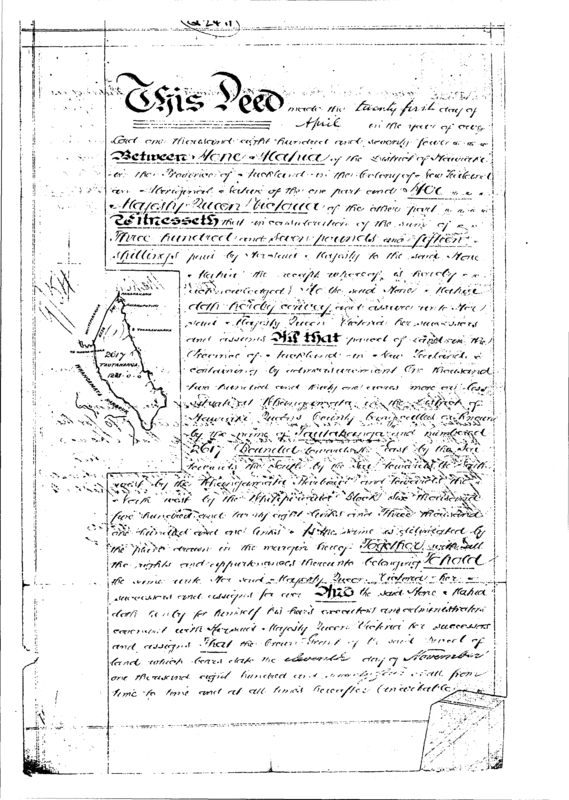 This Deed made the twenty first day of
April in the year of our
Lord one thousand eight hundred and seventy four
Between Hone Mahia of the District of Hauraki
in the Province of Auckland in the Colony of New Zealand
an Aboriginal Native of the one part and Her
Majesty Queen Victoria of the other part
Witnesseth that in consideration of the sum of
Three hundred and seven pounds and fifteen
shillings paid by Her said Majesty to the said Hone
Mahia the receipt whereof is hereby
acknowledged He the said Hone Mahia
doth hereby convey and assure unto Her
said Majesty Queen Victoria her successors
and assigns All that parcel of land in the
Province of Auckland in New Zealand
containing by admeasurement One thousand
two hundred and thirty one acres more or less
situated at Whangamata in the District of
Hauraki Queens County being called or known
by the name of and numbered
2617 Bounded towards the East by the Sea
towards the South by the Sea towards the South
west by the Whangamata Harbour and towards the
North west by the Block six thousand
five hundred and twenty eight links and Three thousand
one hundred and one links As the same is delineated by
the plan drawn in the margin hereof Together with all
the rights and appurtenances thereunto belonging To hold
the same unto Her said Majesty Queen Victoria her
successors and assigns for ever And the said Hone Mahia
doth hereby for himself his heirs executors and administrators
covenant with Her said Majesty Queen Victoria her successors
and assigns That the Crown Grant of the said parcel of
land which bears date the day of November
one thousand eight hundred and seventy shall from
time to time and at all times hereafter
2617
1231-0-0